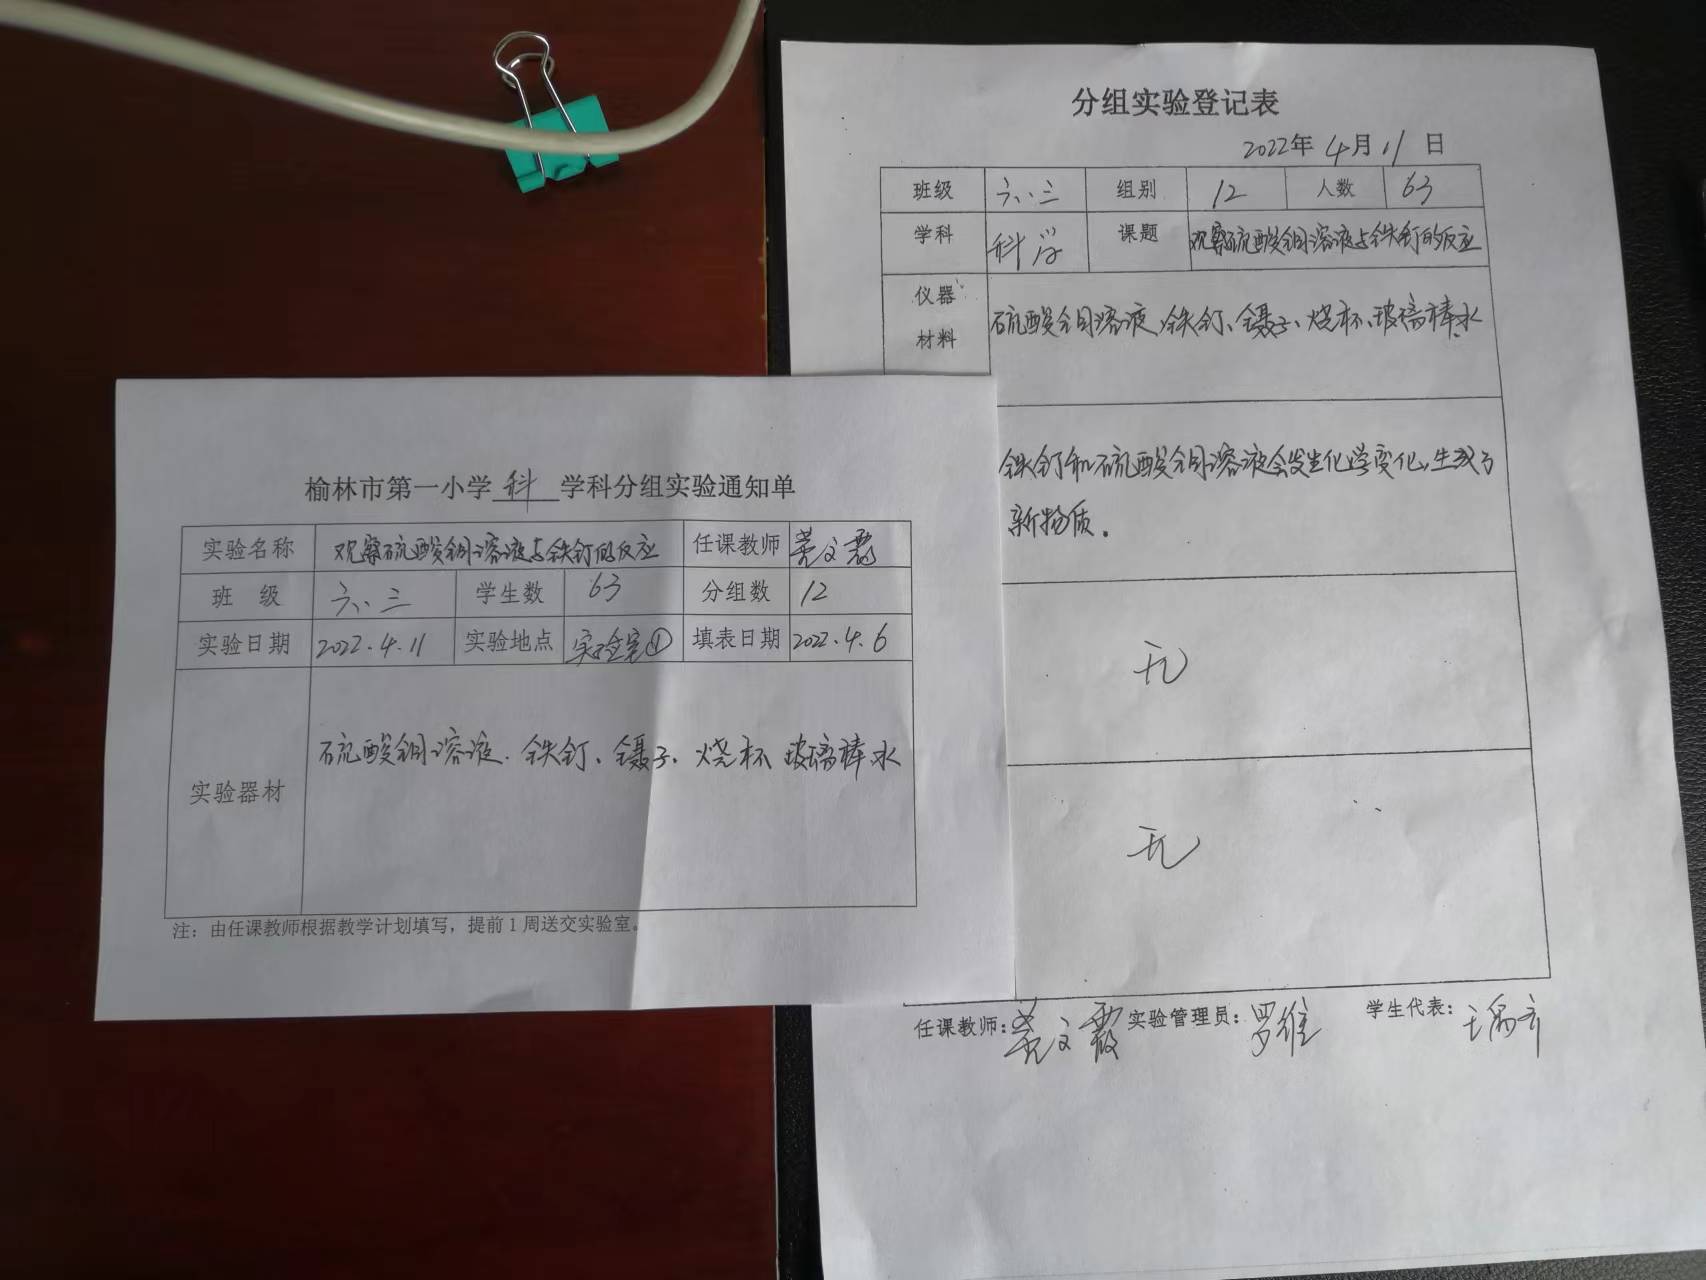 榆林市第一小学 科 学科分组实验通知单
实验名称 观察硫酸铜溶液与铁钉的反应 任课教师 文霞
班 级 六、三 学生数 63 分组数 12
实验日期 2022.4.11 实验地点 实验室① 填表日期 2022.4.6
实验器材 硫酸铜溶液、铁钉、镊子、烧杯 玻璃棒 水
注：由任课教师根据教学计划填写，提前1周送交实验室。
分组实验登记表
2022年 4月 11 日
班级 六、三 组别 12 人数 63
学科 科学 课题 观察硫酸铜溶液与铁钉的反应
仪器
材料
硫酸铜溶液、铁钉、镊子、烧杯、玻璃棒、水
铁钉和硫酸铜溶液会发生化学变化，生成了
新物质。
无
无
任课教师： 文霞 实验管理员：罗维 学生代表：